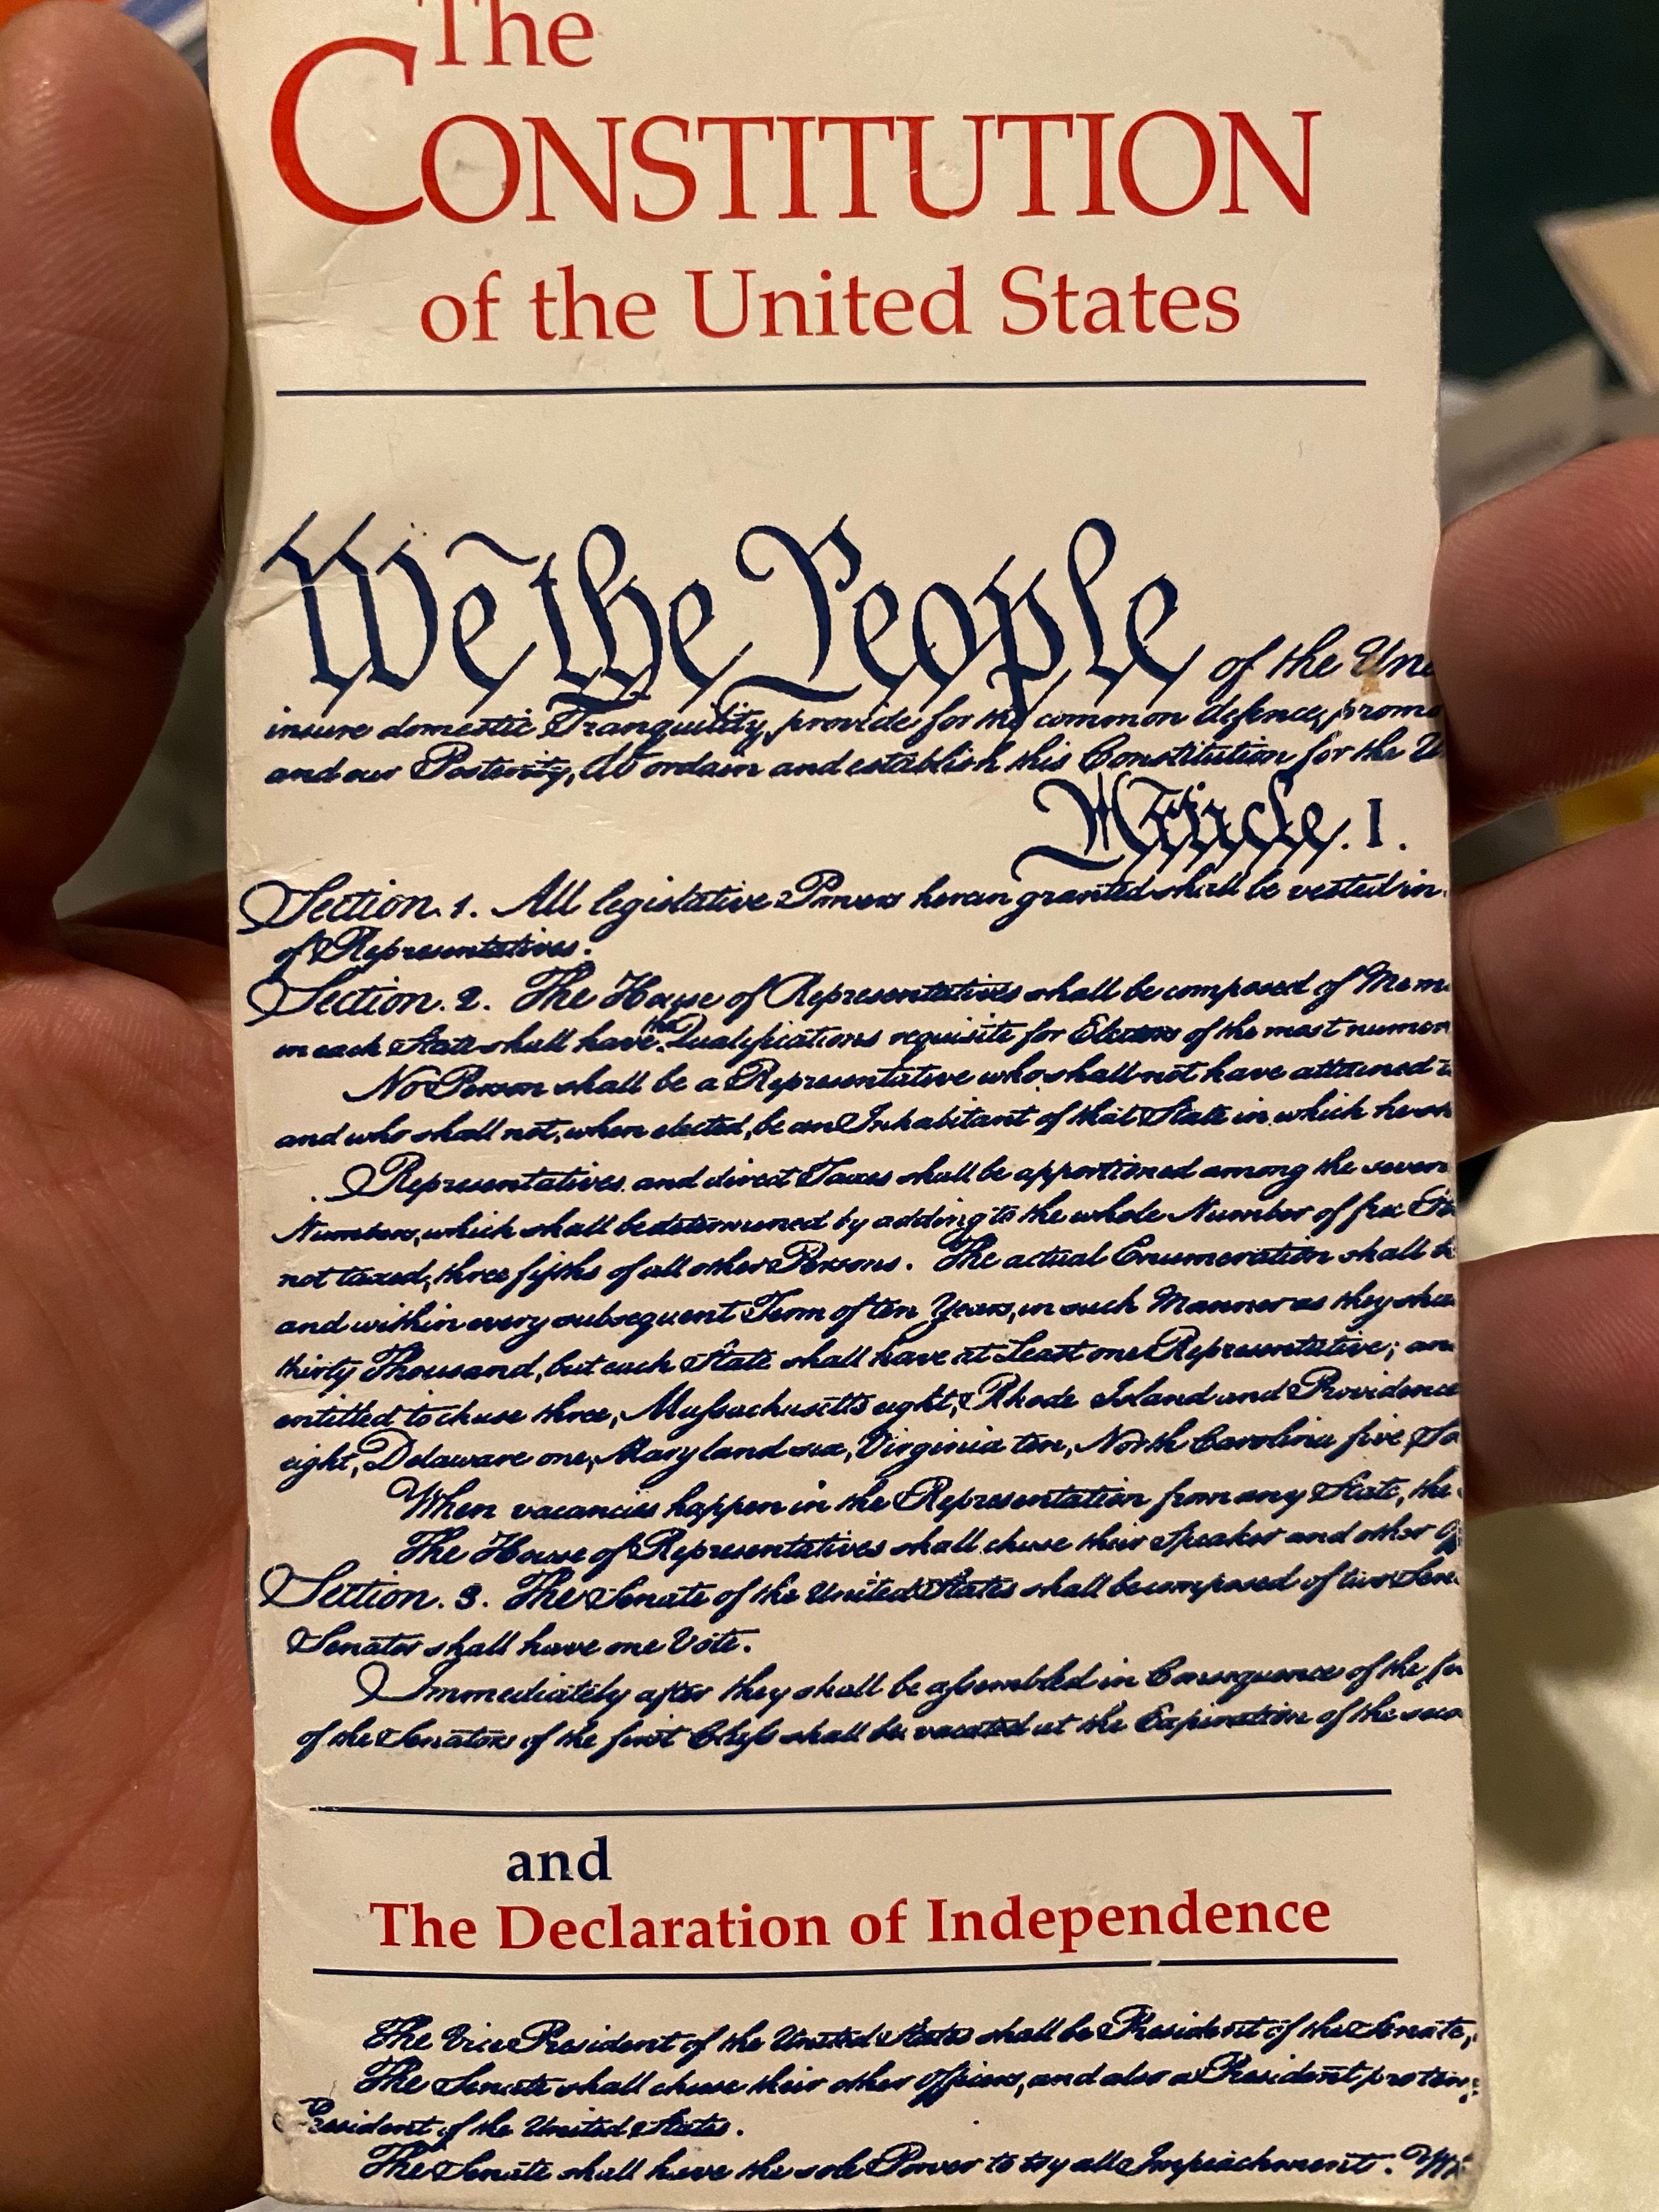 The
CONSTITUTION
of the United States
We the People of the Uni
insure domestic Tranquility, provide for the common defence, promo
and our Posterity, do ordain and establish this Constitution for the U
Article. I.
Section. 1. All legislative Powers herein granted shall be vested in
of Representatives.
Section. 2. The House of Representatives shall be composed of Mem
in each State shall have the Qualifications requisite for Electors of the most numer
No Person shall be a Representative who shall not have attained to
and who shall not, when elected, be an Inhabitant of that State in which he sh
Representatives and direct Taxes shall be apportioned among the sever
Numbers, which shall be determined by adding to the whole Number of free Pe
not taxed, three fifths of all other Persons. The actual Enumeration shall be
and within every subsequent Term of ten Years, in such Manner as they sha
thirty Thousand, but each State shall have at Least one Representative; an
entitled to chuse three, Massachusetts eight, Rhode Island and Providence
eight, Delaware one, Maryland six, Virginia ten, North Carolina five, So
When vacancies happen in the Representation from any State, the
The House of Representatives shall chuse their Speaker and other O
Section. 3. The Senate of the United States shall be composed of two Sen
Senator shall have one Vote.
Immediately after they shall be assembled in Consequence of the fir
of the Senators of the first Class shall be vacated at the Expiration of the seco
and
The Declaration of Independence
The Vice President of the United States shall be President of the Senate,
The Senate shall chuse their other Officers, and also a President pro tem
President of the United States.
The Senate shall have the sole Power to try all Impeachments.